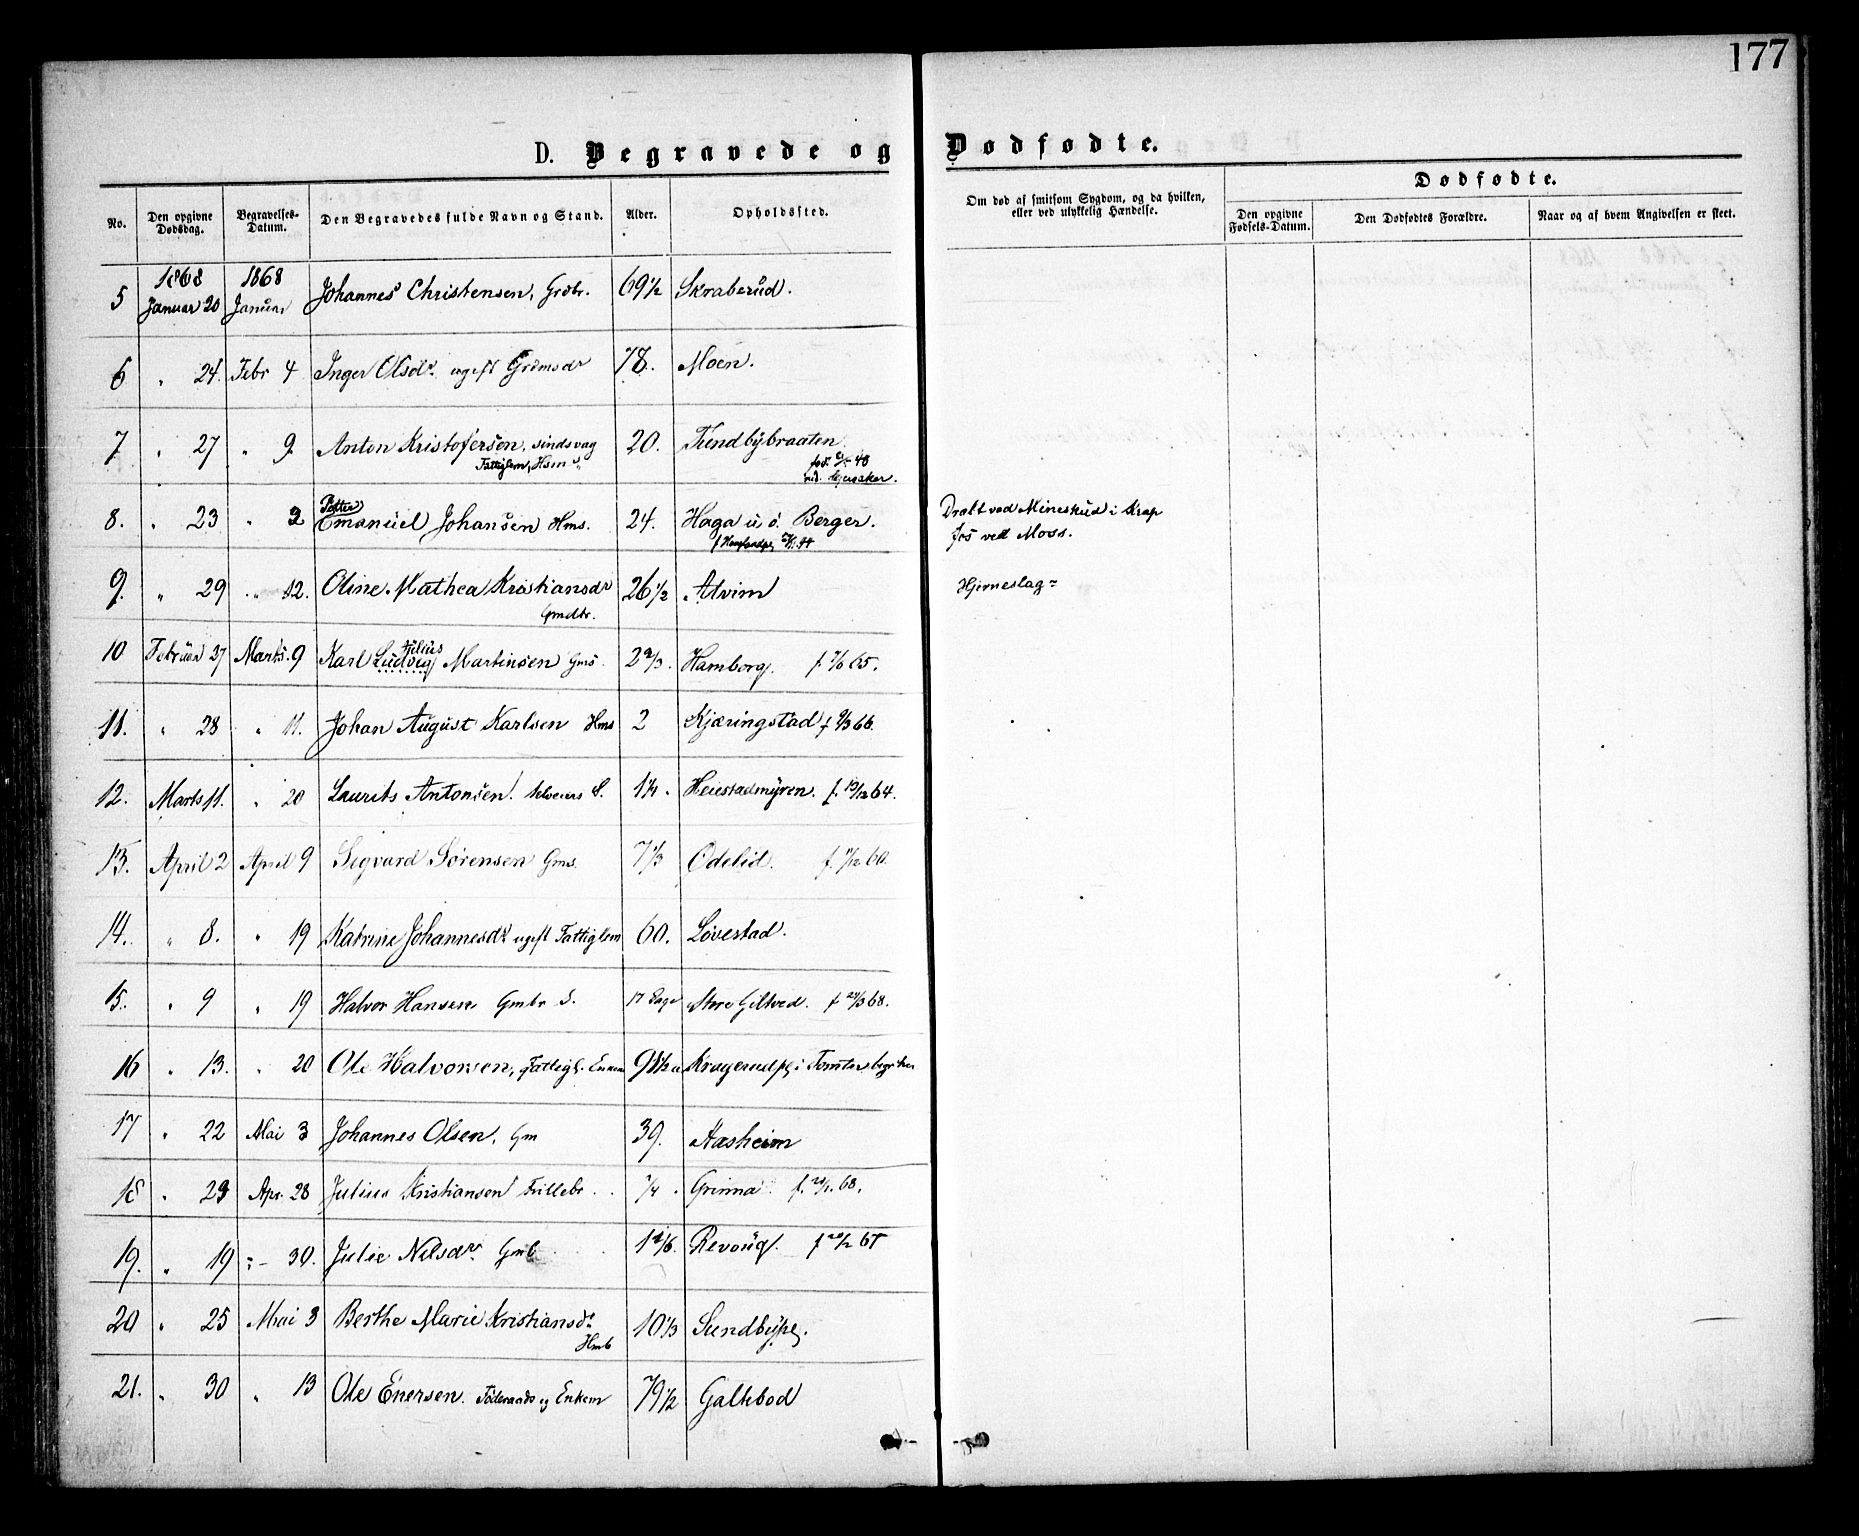 177
D. Begravede og Dødfødte.
No. Den opgivne Dødsdag. Begravelses-Datum. Den Begravedes fulde Navn og Stand. Alder. Opholdssted. Om død af smitsom Sygdom, og da hvilken, eller ved ulykkelig Hændelse. Dødfødte.
Den opgivne Fødsels-Datum. Den Dødfødtes Forældre. Naar og af hvem Angivelsen er skeet.
1868 1868
5 Januar 20 Januar Johannes Christensen, Grdbr. 69 1/2 Skraberud.
6 " 24. Febr 4 Inger Olsdr. ugift Grdmsdr 78. Moen.
7 " 27 " 9 Anton Kristofersen, sindsvag 20. Sundbybraaten
Fattiglem, Hsm
Petter
8. " 23 " 2 Emanuel Johansen Hms. 24. Haga u. ö. Berger. Dræbt ved Mineskud i Krap
fos ved Moss.
9. " 29 " 12. Oline Mathea Kristiansdr 26 1/2 Alvim Hjerneslag
Gmdtr.
Julius
10 Februar 27 Marts. 9 Karl Ludvig Martinsen Gms. 2 2/3. Hamborg. f. 7/6 65.
11. " 28 " 11. Johan August Karlsen Hms 2 Kjæringstad f 9/3 66.
12. Marts 11. " 20 Laurits Antonsen! Selveiers S. 1 1/4. Heiestadmyren. f. 19/12 64.
13. April 2 April 9 Sigvard Sørensen Gms. 7 1/3 Ødelid. f. 11/12 60.
14. " 8. " 19 Katrine Johannesdr ugift Fattiglem 60. Løvestad.
15. " 9 " 19 Halvor Hansen Gmbr S. 17 Dage Store Giltved. f 24/3 68.
16 " 13. " 20 Ole Halvorsen, Fattigl. Enkem 91 1/2 Kragerudpl i Tomter
17 " 22 Mai 3 Johannes Olsen, Gm 39. Aasheim
18 " 23 Apr. 28 Julius Kristiansen Frillebr. 1/4. Grinna. f. 1. 68.
19. " 19 " 30. Julie Nilsdr. Gmb 1 1/6. Revoug. f 20/2 67
20 " 25 Mai 3 Berthe Marie Kristiansdr. 10 1/3 Sundbypl.
Hmb
21. " 30 " 13 Ole Enersen. Föderaads og Enkem 79 1/2 Galtebod